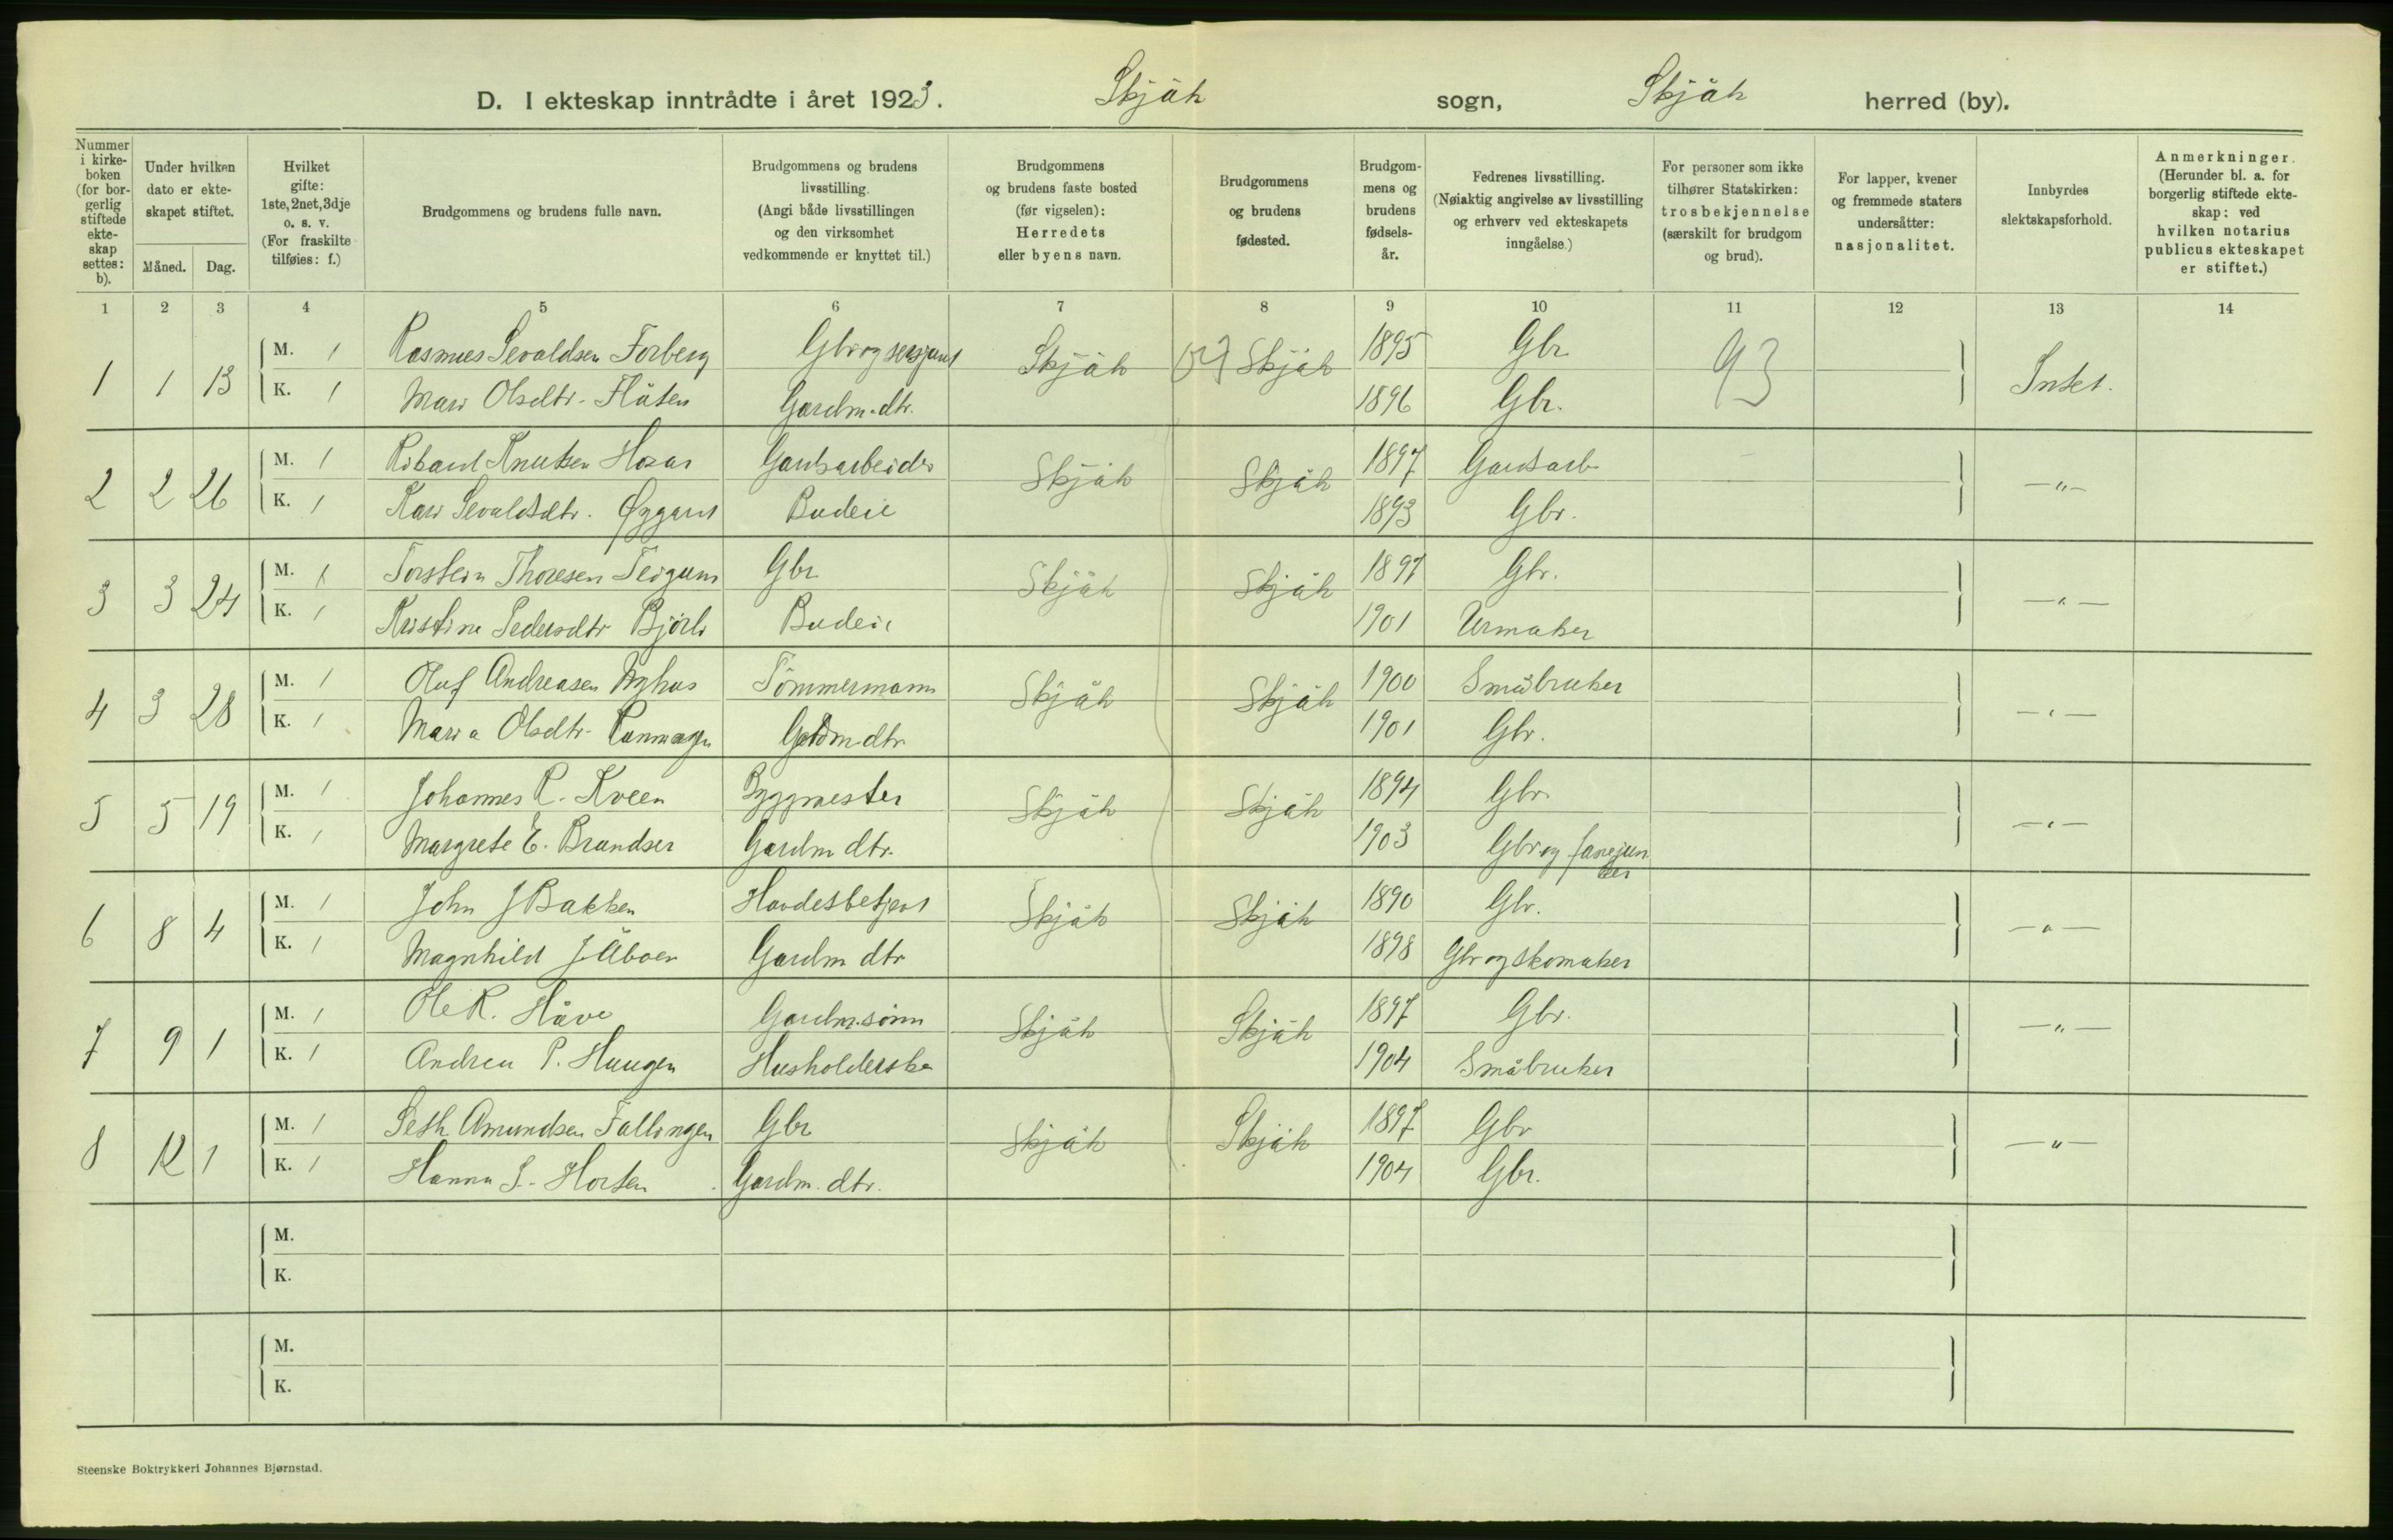 D. I ekteskap inntrådte i året 1923. Skjåk sogn, Skjåk herred (by).
Nummer i kirke-boken (for bor-gerlig stiftede ekte-skap settes: b).
Under hvilken dato er ekte-skapet stiftet.
Måned. Dag.
Hvilket gifte: 1ste, 2net, 3dje o. s. v. (For fraskilte tilføies: f.)
Brudgommens og brudens fulle navn.
Brudgommens og brudens livsstilling. (Angi både livsstillingen og den virksomhet vedkommende er knyttet til.)
Brudgommens og brudens faste bosted (før vigselen): Herredets eller byens navn.
Brudgommens og brudens fødested.
Brudgom-mens og brudens fødsels-år.
Fedrenes livsstilling. (Nøiaktig angivelse av livsstilling og erhverv ved ekteskapets inngåelse.)
For personer som ikke tilhører Statskirken: trosbekjennelse (særskilt for brudgom og brud).
For lapper, kvener og fremmede staters undersåtter: nasjonalitet.
Innbyrdes slektskapsforhold.
Anmerkninger. (Herunder bl. a. for borgerlig stiftede ekte-skap: ved hvilken notarius publicus ekteskapet er stiftet.)
1 2 3 4 5 6 7 8 9 10 11 12 13 14
1 1 13 M. 1 Rasmus Sevaldsen Forberg Gbr og sersjant Skjåk Skjåk 1895 Gbr. 93 Intet.
K. 1 Mari Olsdtr. Flåten Gardm.dtr. 1896 Gbr.
2 2 26 M. 1 Knutsen Gardsarbeider Skjåk Skjåk 1897 Gardsarb. —"—
K. 1 Kari Sevaldsdtr. Øygard Budeie 1893 Gbr.
3 3 24 M. 1 Torstein Thoresen Teigum Gbr Skjåk Skjåk 1897 Gbr. —"—
K. 1 Kristine Pedersdtr Bjørli Budeie 1901 Urmaker
4 3 28 M. 1 Oluf Andreasen Nyhus Tömmermann Skjåk Skjåk 1900 Småbruker —"—
K. 1 Maria Olsdtr. Gardmdtr. 1901 Gbr.
5 5 19 M. 1 Johannes R. Kveen Byggmester Skjåk Skjåk 1894 Gbr. —"—
K. 1 Margrete E. Brandser Gardm dtr. 1903 Gbr og fanejun
ker
6 8 4 M. 1 John J Bakken Handelsbetjent Skjåk Skjåk 1890 Gbr. —"—
K. 1 Magnhild J. Åboen Gardm dtr 1898 Gbr og skomaker
7 9 1 M. 1 Ole R. Håve Gardm.sønn Skjåk Skjåk 1897 Gbr. —"—
K. 1 Andrea P. Haugen Husholderske 1904 Småbruker
8 12 1 M. 1 Seth Amundsen Fallingen Gbr Skjåk Skjåk 1897 Gbr —"—
K. 1 Hanna S. Horten Gardm. dtr. 1904 Gbr.
M.
K.
M.
K.
Steenske Boktrykkeri Johannes Bjørnstad.